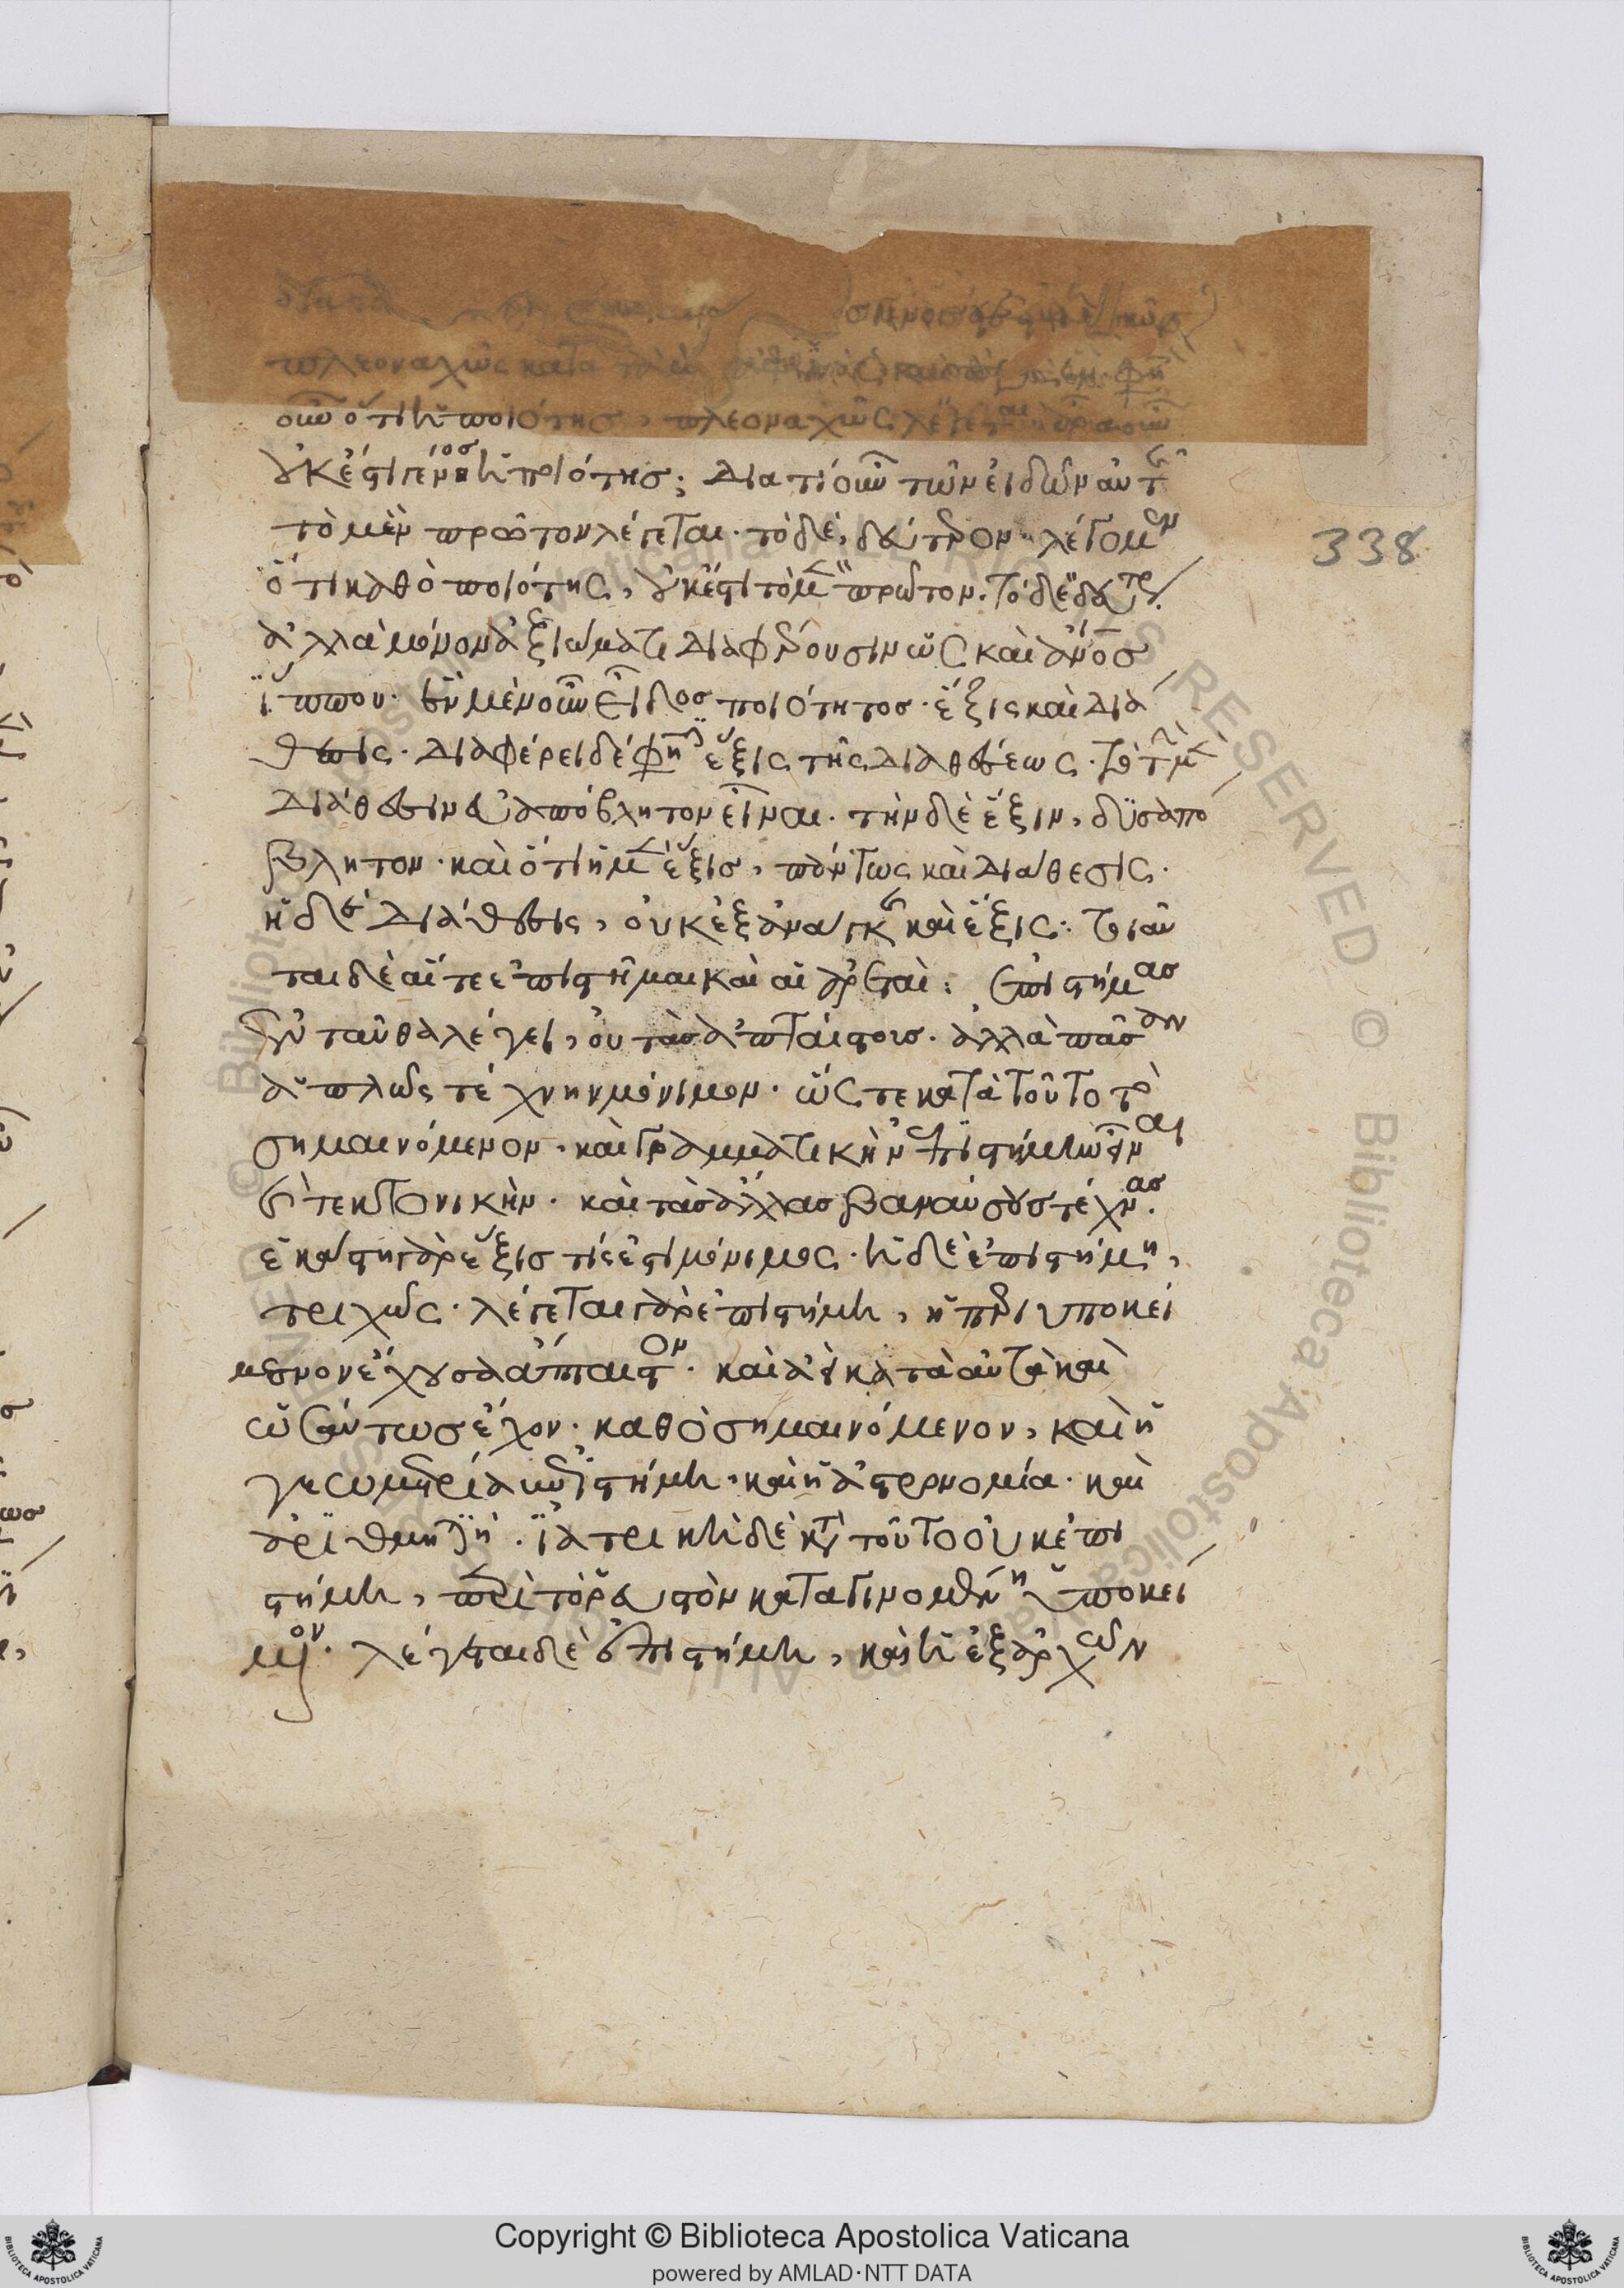 πλεοναχῶς κατὰ
οὖν ὅτι ἡ ποιότης, πλεοναχῶς λέγεται ἆρα οὖν
οὐκ ἔστι γένος ἡ ποιότης; Διατί οὖν τῶν εἰδῶν αὐτῆς
τὸ μὲν πρῶτον λέγεται· τὸ δὲ, δεύτερον· λέγομεν
ὅτι καθὸ ποιότης, οὐκ ἔστι τὸ μὲν πρῶτον. τὸ δὲ δεύτερον.
ἀλλὰ μόνον ἀξιώματι Διαφέρουσιν ὡς καὶ ἄνος
ἵππου· ἓν μὲν οὖν εἶδος ποιότητος· ἕξις καὶ Διά
θεσις· Διαφέρει δέ φησιν ἕξις τῆς Διαθέσεως· τῶ τὴν μὲν
Διάθεσιν εὐαπόβλητον εἶναι· τὴν δὲ ἕξιν, δυσαπό
βλητον· καὶ ὅτι ἡ μὲν ἕξις, πάντως καὶ Διάθεσις·
ἡ δὲ Διάθεσις, οὐκ ἐξ ἀνάγκης καὶ ἕξις: τοιαῦ
ται δὲ αἵ τε ἐπιστῆμαι καὶ αἱ ἀρεταί: ἐπιστήμας
ἐνταῦθα λέγει, οὐ τὰς ἀπταίστοις· ἀλλὰ πᾶσαν
ἁπλῶς τέχνην μόνιμον· ὥστε κατὰ τοῦτο τὸ
σημαινόμενον· καὶ γραμματικὴν ἐπιστήμην εἶναι
καὶ τεκτονικὴν· καὶ τὰς ἄλλας βαναύσους τέχνας.
ἑκάστη γὰρ ἕξις τίς ἐστι μόνιμος· ἡ δὲ ἐπιστήμη,
τριχῶς· λέγεται γὰρ ἐπιστήμη, ἡ περὶ ὑποκεί
μενον ἔχουσα ἄπταιστον· καὶ ἀεὶ κατὰ αὐτὰ καὶ
ὡσαύτως ἔχον· καθὸ σημαινόμενον, καὶ ἡ
γεωμετρία ἐπιστήμη· καὶ ἡ ἀστρονομία· καὶ
ἀριθμητική· ἰατρικὴ δὲ κατὰ τοῦτο οὐκ ἐπι
στήμη, περὶ τὸ ῥευστὸν καταγινομένη ὑποκεί
μενον· λέγεται δὲ ἐπιστήμη, καὶ ἡ ἐξ ἀρχῶν
338
Copyright © Biblioteca Apostolica Vaticana
powered by AMLAD·NTT DATA